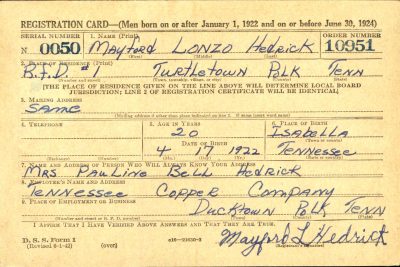 REGISTRATION CARD—(Men born on or after January 1, 1922 and on or before June 30, 1924)
SERIAL NUMBER 1. NAME (Print) ORDER NUMBER
N 0050 Mayford Lonzo Hedrick 10951
2. PLACE OF RESIDENCE (Print)
R.F.D. #1 Turtletown Polk Tenn
(Number and street) (Town, township, village, or city) (County) (State)
[THE PLACE OF RESIDENCE GIVEN ON THE LINE ABOVE WILL DETERMINE LOCAL BOARD
JURISDICTION; LINE 2 OF REGISTRATION CERTIFICATE WILL BE IDENTICAL]
3. MAILING ADDRESS
Same
(Mailing address if other than place indicated on line 2. If same insert word same)
4. TELEPHONE 5. AGE IN YEARS 6. PLACE OF BIRTH
20 Isabella
DATE OF BIRTH (Town or county)
4 17 1922 Tennessee
(Exchange) (Number) (Mo.) (Day) (Yr.) (State or country)
7. NAME AND ADDRESS OF PERSON WHO WILL ALWAYS KNOW YOUR ADDRESS
Mrs Pauline Bell Hedrick
8. EMPLOYER'S NAME AND ADDRESS
Tennessee Copper Company
9. PLACE OF EMPLOYMENT OR BUSINESS
Ducktown Polk Tenn
(Number and street or R. F. D. number) (Town) (County) (State)
I AFFIRM THAT I HAVE VERIFIED ABOVE ANSWERS AND THAT THEY ARE TRUE.
D. S. S. Form 1
(Revised 6-1-42) (over) Mayford L Hedrick